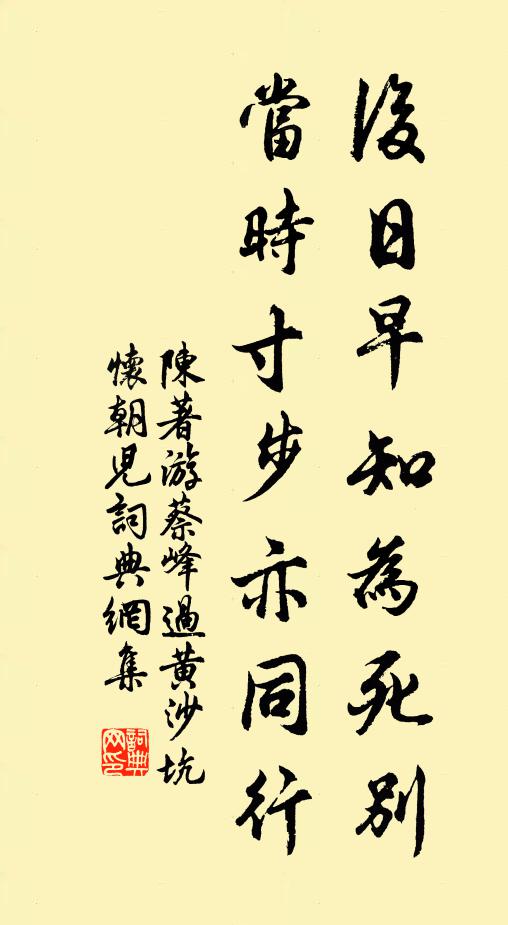 後日早知為死別
當時寸步亦同行
陳著游蔡峰過黃沙坑
懷朝兒詞典網集
詞典
网印